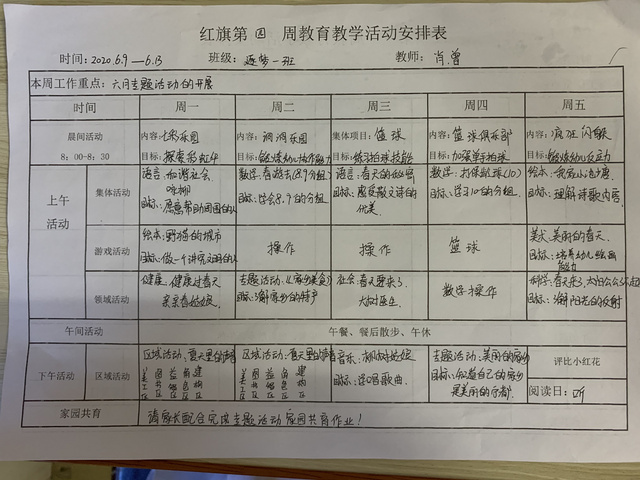 红旗第 四 周教育教学活动安排表
时间: 2020.6.9 — 6.13 班级: 逐梦一班 教师: 肖.曾
本周工作重点: 六月主题活动的开展
时间 周一 周二 周三 周四 周五
晨间活动 内容: 七彩乐园 内容: 乐园 集体项目: 篮球 内容: 篮球俱乐部 内容: 疯狂闪躲
8:00-8:30 目标: 探索彩虹 目标: 锻炼幼儿协作能力 目标: 练习拍球技能 目标: 加强单手拍球 目标: 锻炼幼儿反应力
上午
活动
集体活动 语言: 和谐社会 数学: 春游去(8.9分组) 语言: 春天的秘密 数学: 打保龄球(10) 绘本:
目标: 愿意帮助周围的人 目标: 学会8.9的分组. 目标: 感受散文诗的 目标: 学习10的分组. 目标: 理解诗歌内容.
优美.
游戏活动 绘本: 野猫的城市 操作 操作 篮球 美术: 美丽的春天.
目标: 做一个讲文明的人 目标: 培养幼儿绘画
能力
领域活动 健康: 健康过春天 主题活动: 《家乡美食》 社会: 春天要来了. 数学操作 科学: 春天来了,
亲亲春姑娘 目标: 了解家乡的特产 大树医生 目标: 了解阳光的反射
午间活动 午餐、餐后散步、午休
下午活动 区域活动 区域活动: 夏天里的 区域活动: 夏天里的 音乐: 主题活动: 美丽的家乡 评比小红花
美工区 益智区 角色区 建构区 美工区 益智区 角色区 建构区 目标: 学唱歌曲. 目标: 知道自己的家乡
是美丽的 阅读日: 听
家园共育 请家长配合完成主题活动家园共育作业!